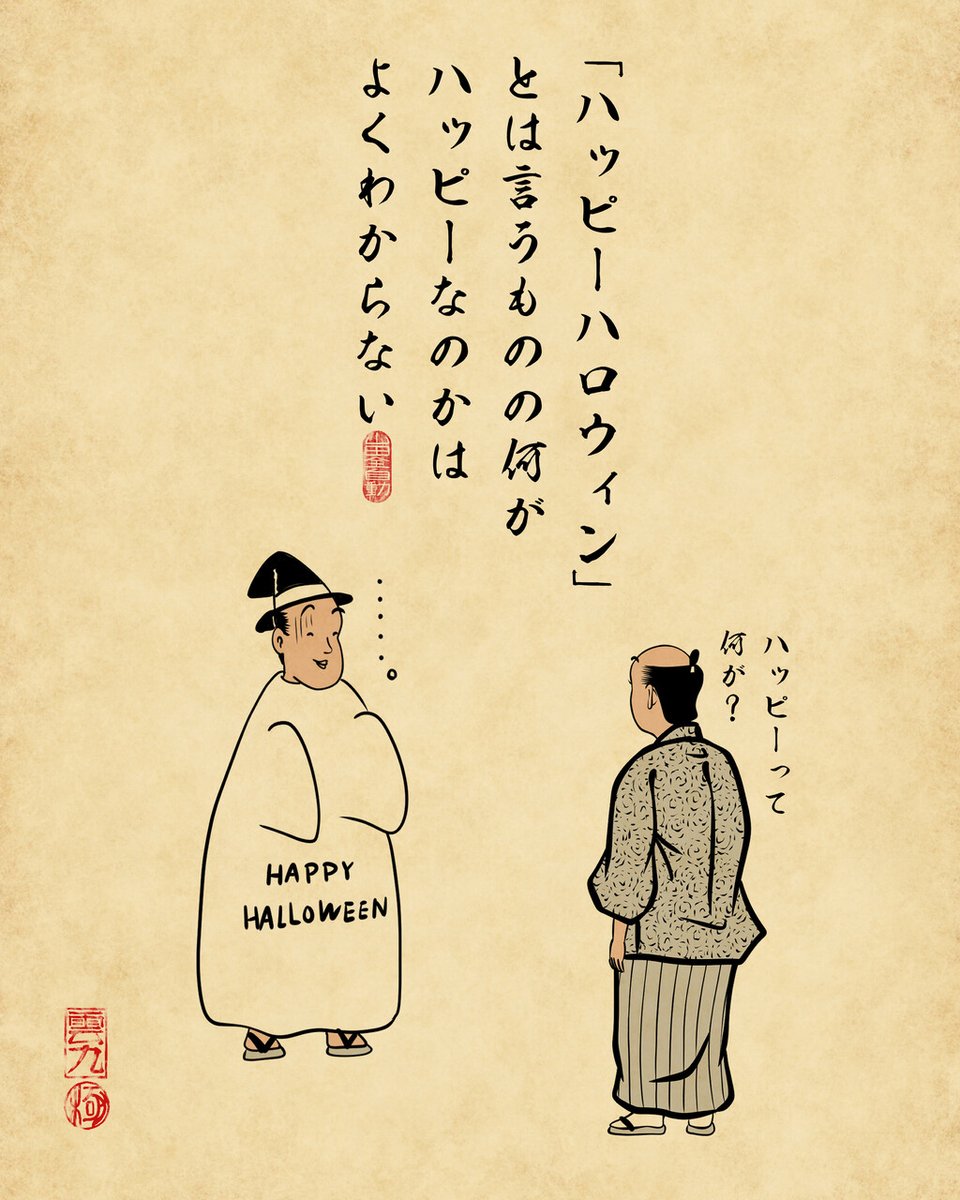 「ハッピーハロウィン」
とは言うものの何が
ハッピーなのかは
よくわからない
ハッピーって
何が？
HAPPY
HALLOWEEN